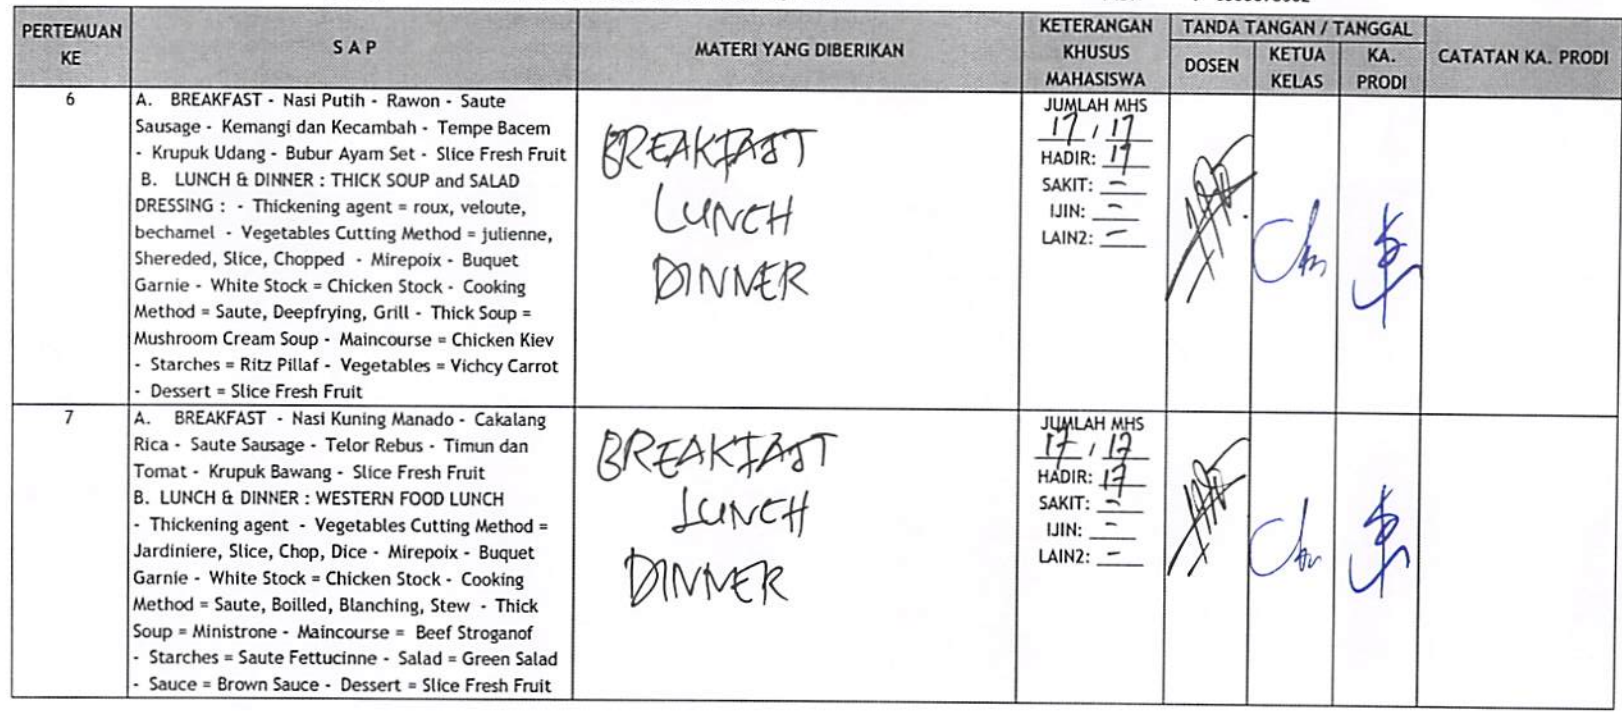 PERTEMUAN KE
S A P
MATERI YANG DIBERIKAN
KETERANGAN KHUSUS MAHASISWA
TANDA TANGAN / TANGGAL
DOSEN
KETUA KELAS
KA. PRODI
CATATAN KA. PRODI
6
A. BREAKFAST - Nasi Putih - Rawon - Saute
Sausage - Kemangi dan Kecambah - Tempe Bacem
- Krupuk Udang - Bubur Ayam Set - Slice Fresh Fruit
B. LUNCH & DINNER : THICK SOUP and SALAD
DRESSING : - Thickening agent = roux, veloute,
bechamel - Vegetables Cutting Method = julienne,
Shereded, Slice, Chopped - Mirepoix - Buquet
Garnie - White Stock = Chicken Stock - Cooking
Method = Saute, Deepfrying, Grill - Thick Soup =
Mushroom Cream Soup - Maincourse = Chicken Kiev
- Starches = Ritz Pillaf - Vegetables = Vichcy Carrot
- Dessert = Slice Fresh Fruit
BREAKFAST
LUNCH
DINNER
JUMLAH MHS
17 / 17
HADIR: 17
SAKIT: -
IJIN: -
LAIN2: -
7
A. BREAKFAST - Nasi Kuning Manado - Cakalang
Rica - Saute Sausage - Telor Rebus - Timun dan
Tomat - Krupuk Bawang - Slice Fresh Fruit
B. LUNCH & DINNER : WESTERN FOOD LUNCH
- Thickening agent - Vegetables Cutting Method =
Jardiniere, Slice, Chop, Dice - Mirepoix - Buquet
Garnie - White Stock = Chicken Stock - Cooking
Method = Saute, Boilled, Blanching, Stew - Thick
Soup = Ministrone - Maincourse = Beef Stroganof
- Starches = Saute Fettucinne - Salad = Green Salad
- Sauce = Brown Sauce - Dessert = Slice Fresh Fruit
BREAKFAST
LUNCH
DINNER
JUMLAH MHS
17 / 17
HADIR: 17
SAKIT: -
IJIN: -
LAIN2: -